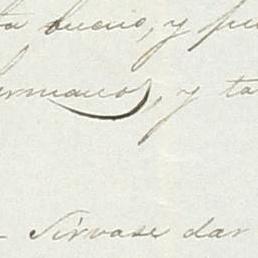 ta bueno, y pu
ermanos, y ta
- Sírvase dar